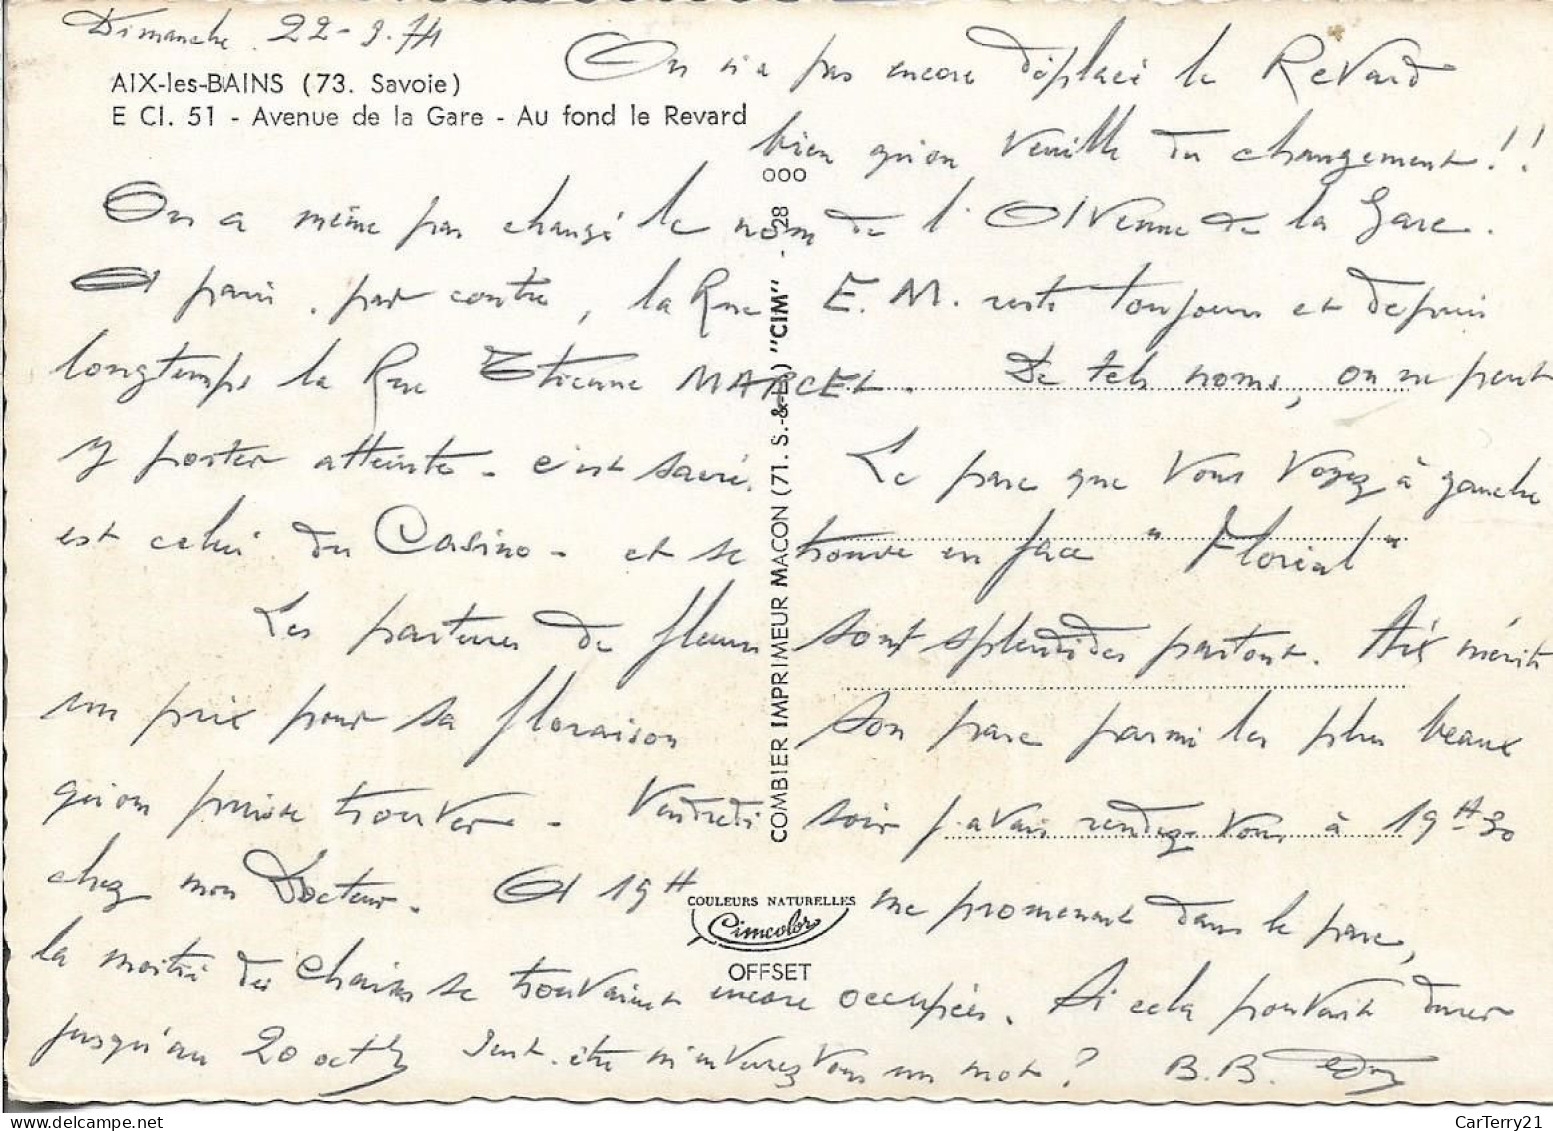 Dimanche 22-9.74
AIX-les-BAINS (73. Savoie)
E Cl. 51 - Avenue de la Gare - Au fond le Revard
On n'a pas encore déplacé le Revard
bien qu'on veuille du changement!!
On a même pas changé le nom de l'Avenue de la Gare.
A Paris, par contre, la Rue E.M. reste toujours et depuis
longtemps la Rue Etienne MARCEL. De tels noms, on ne peut
y porter atteinte - c'est sacré. Le parc que vous voyez à gauche
est celui du Casino - et se trouve en face "Floréal"
Les parterres de fleurs sont splendides partout. Aix mérite
un prix pour sa floraison son parc parmi les plus beaux
qu'on puisse trouver - Vendredi soir j'avais rendez-vous à 19H30
chez mon Docteur. A 19H me promenant dans le parc,
la moitié des chaises se trouvaient encore occupées. Si cela pouvait durer
jusqu'au 20 oct. Peut-être m'enverrez vous un mot? B.B.
000
COMBIER IMPRIMEUR MACON (71. S.-&-L.) "CIM" - 28
COULEURS NATURELLES
Cimcolor
OFFSET
CarTerry21